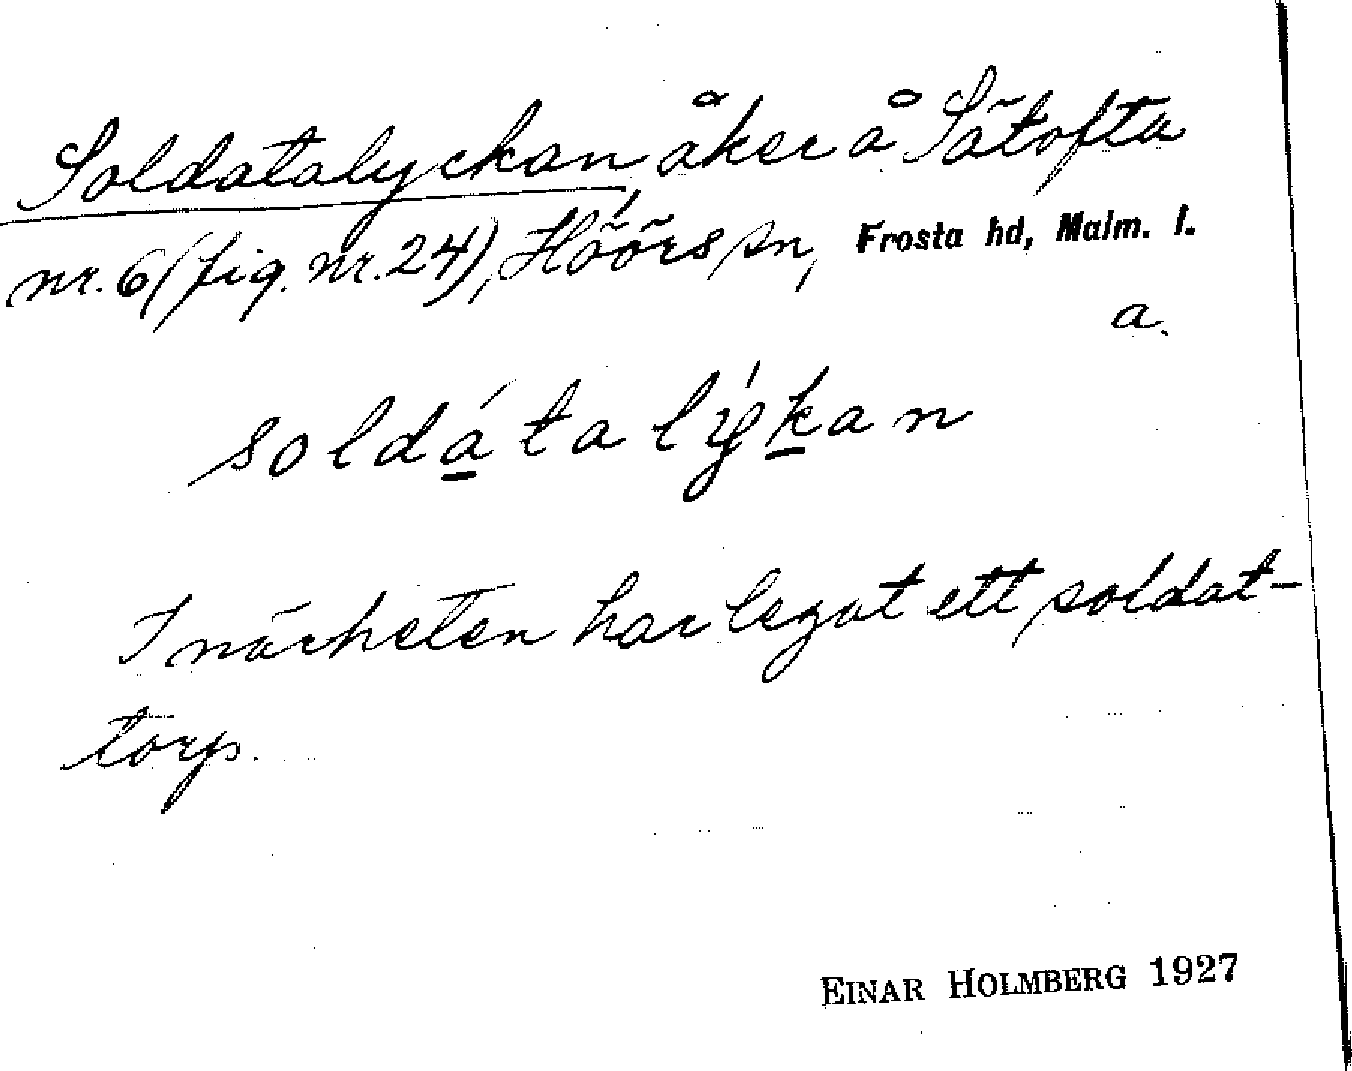 Soldatalyckan, åker å Sätofta
nr. 6 (fig. nr. 24), Höörs sn, Frosta hd, Malm. l.
a.
soldátalýkan
I närheten har legat ett soldat-
torp.
EINAR HOLMBERG 1927